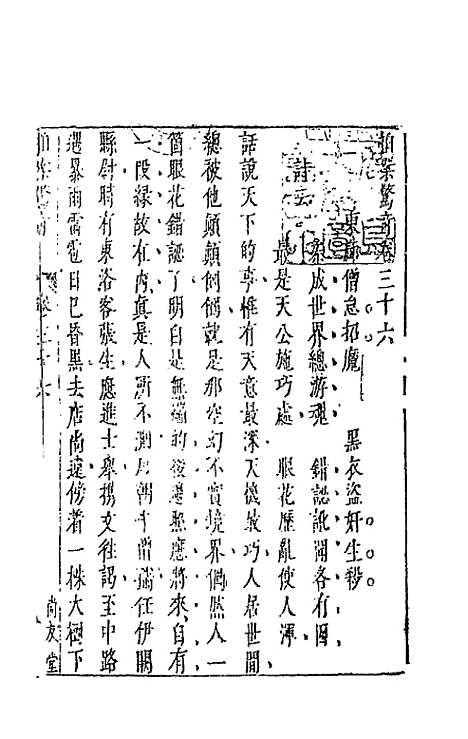 拍案驚奇卷三十六
東廊僧怠招魔　黑衣盜奸生殺
詩云
成世界總游魂　錯認訛聞各有因
最是天公施巧處　眼花歷亂使人渾
話說天下的事惟有天意最深天機最巧人居世間
總被他顛顛倒倒就是那空幻不實境界偶然人一
箇眼花錯認了明白是無端的後邊照應將來自有
一段緣故在內真是人所不測唐朝牛僧孺任伊闕
縣尉時有東洛客張生應進士舉攜文往謁至中路
遇暴雨雷雹日已昏黑去店尚遠傍着一株大樹下
拍案驚奇　卷三十六
尚友堂